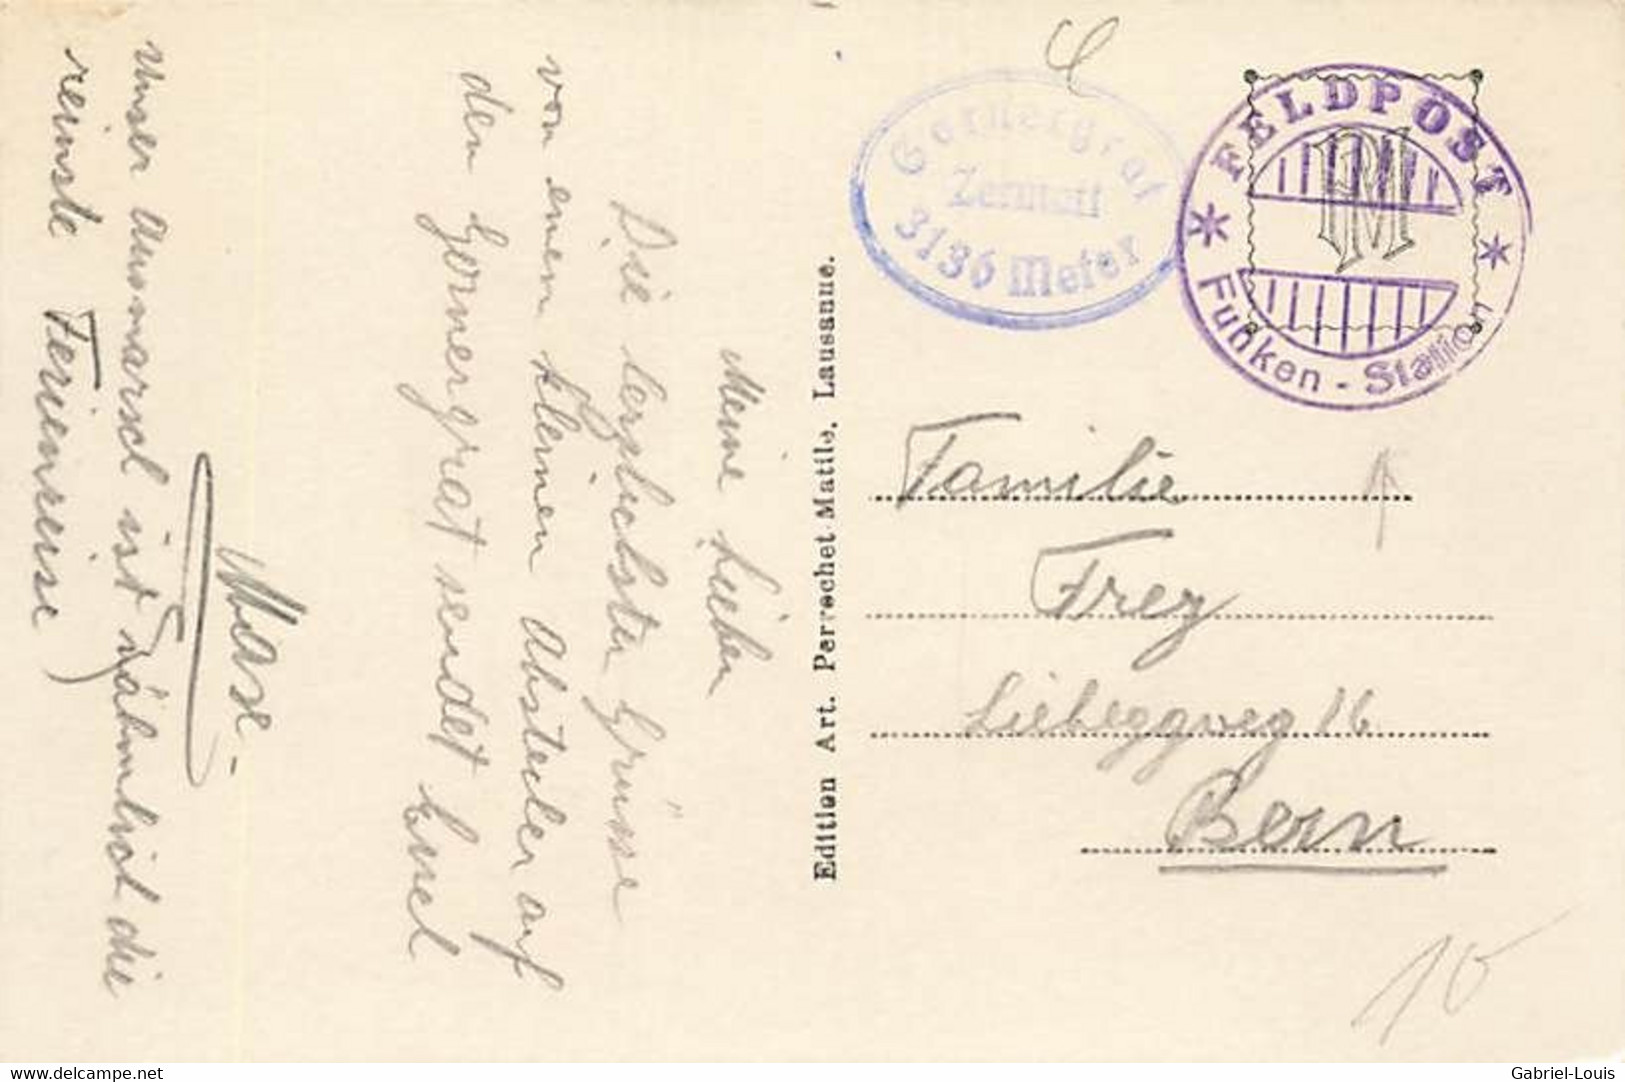 Meine Lieben
Die herzlichsten Grüsse
von einem kleinen Abstecher auf
den Gornergrat sendet Euch
Mase -
Unser Ausmarsch ist nähmlich die
reinste Ferienreise)
Edition Art. Perrochet-Matile, Lausanne.
Gornergrat
Zermatt
3136 Meter
FELDPOST
PM
Funken - Station
Familie
Frey
Liebeggweg 16.
Bern
10
delcampe.net
Gabriel-Louis